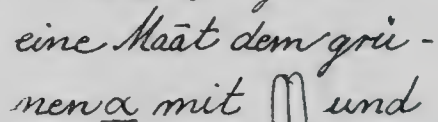 eine Maāt dem grü-
nen α mit und